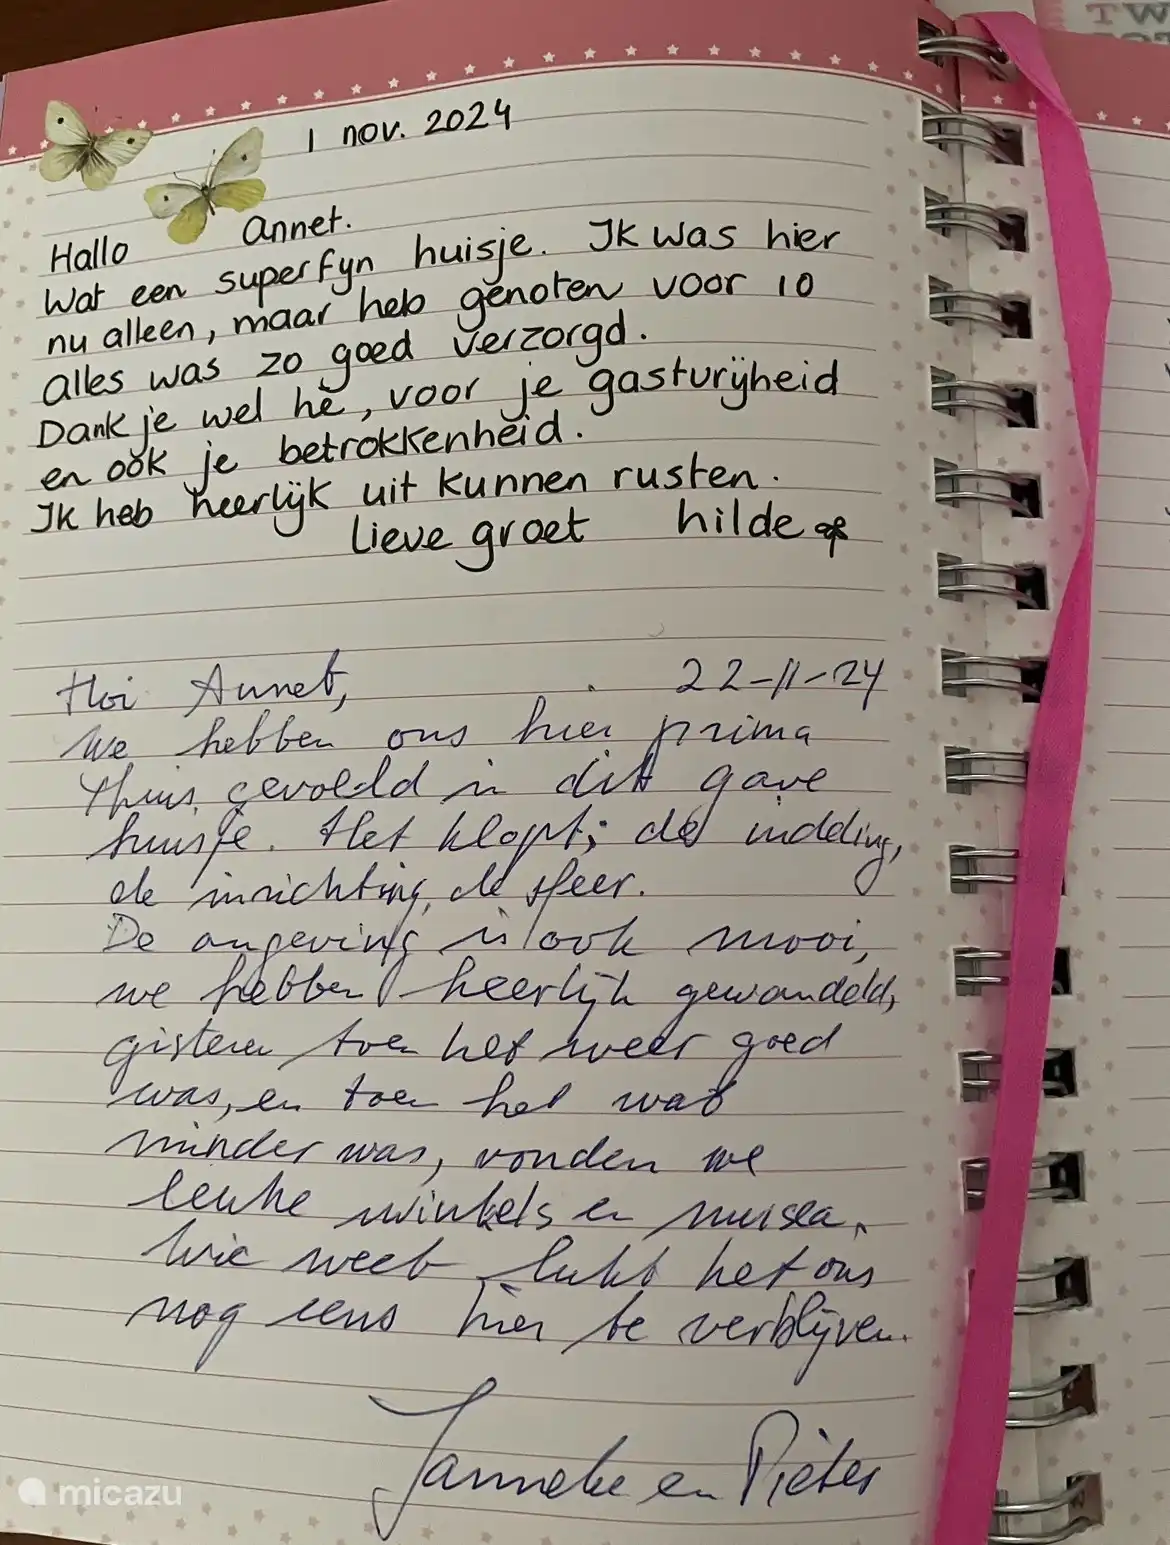 1 nov. 2024
Hallo Annet.
Wat een superfyn huisje. Ik was hier
nu alleen, maar heb genoten voor 10
alles was zo goed verzorgd.
Dank je wel hè, voor je gasturijheid
en ook je betrokkenheid.
Ik heb heerlijk uit kunnen rusten.
lieve groet hilde
Hoi Annet, 22-11-24
We hebben ons hier prima
thuis gevoeld in dit gave
huisje. Het klopt; de indeling,
de inrichting, de sfeer.
De omgeving is ook mooi,
we hebben heerlijk gewandeld,
gisteren toen het weer goed
was, en toen het wat
minder was, vonden we
leuke winkels en musea.
Wie weet lukt het ons
nog eens hier te verblijven.
Janneke en Pieter
micazu
TW